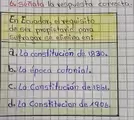 6. Señala la respuesta correcta.
En Ecuador, el requisito
de ser propietario para
sufragar se elimina en:
a. La constitución de 1830.
b. La época colonial.
c. La Constitución de 1861.
d. La Constitucion de 1906.